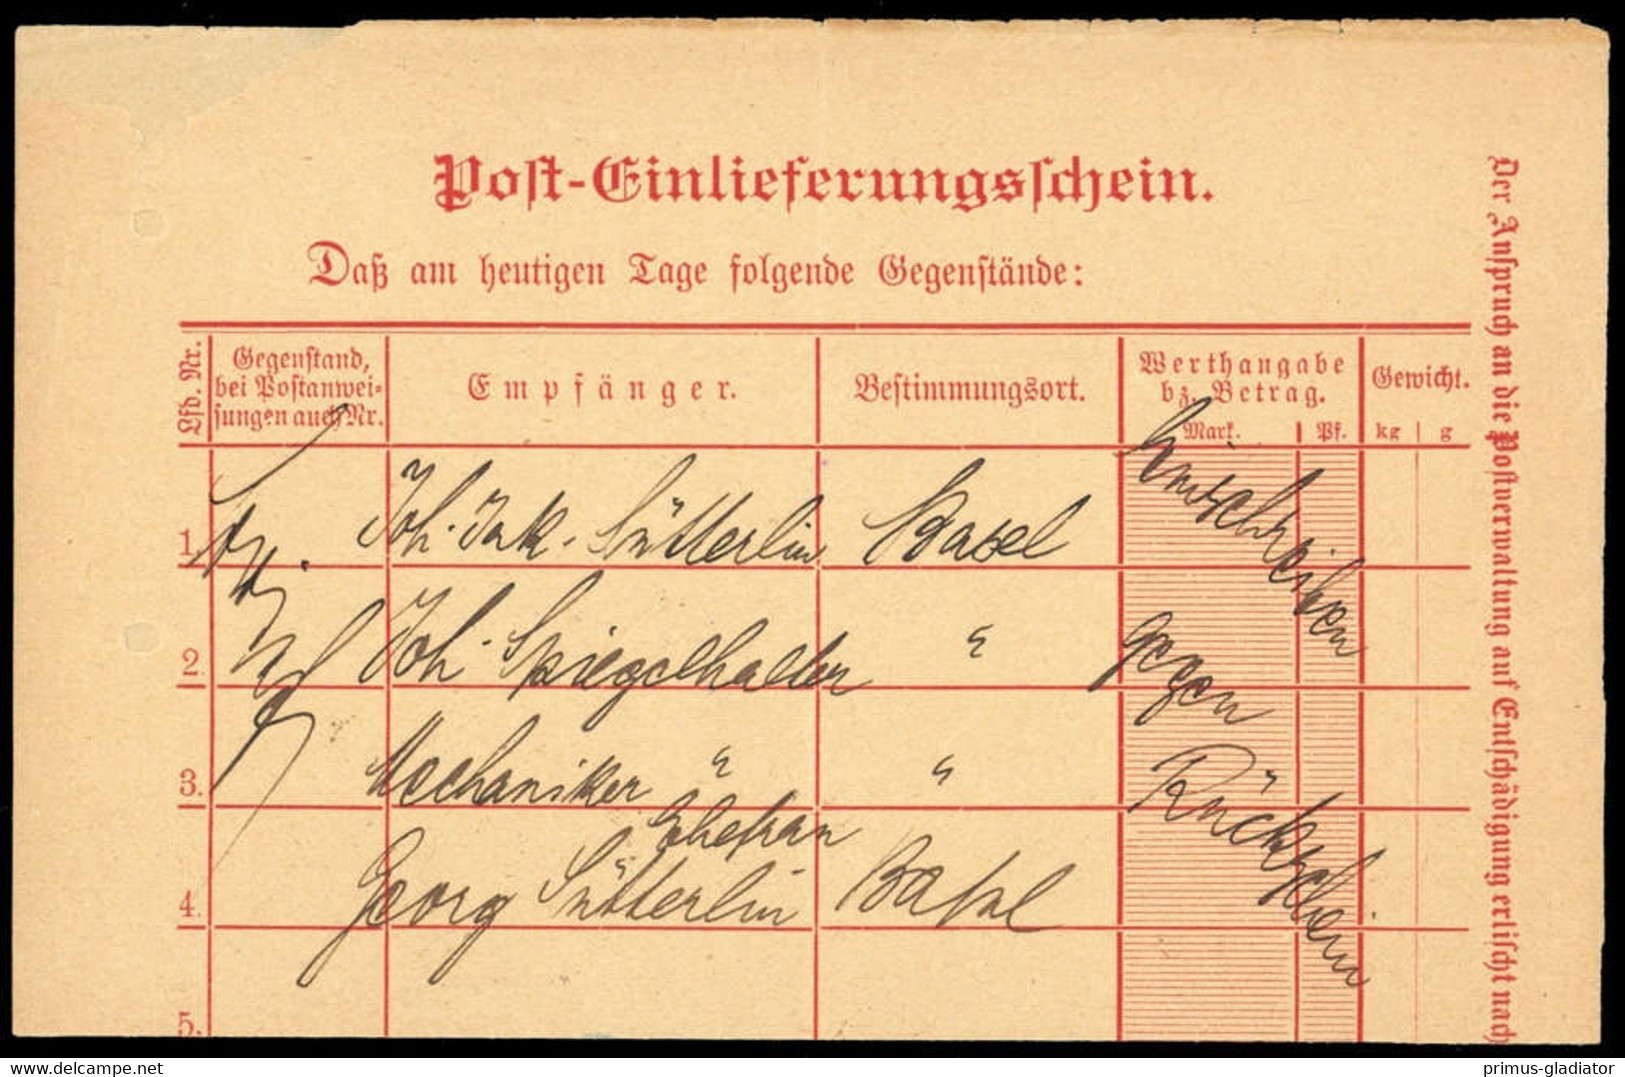 Post-Einlieferungsschein.
Daß am heutigen Tage folgende Gegenstände:
Lfd. Nr.
Gegenstand,
bei Postanwei-
sungen auch Nr.
Empfänger.
Bestimmungsort.
Werthangabe
bz. Betrag.
Mark. Pf.
Gewicht.
kg g
1. Joh. Jak. Sütterlin Basel
2. Joh. Spiegelhalter "
3. Mechaniker " "
Ehefrau
4. Georg Sütterlin Basel
5.
Einschreiben
gegen
Rückschein
Der Anspruch an die Postverwaltung auf Entschädigung erlischt nach
www.delcampe.net
primus-gladiator